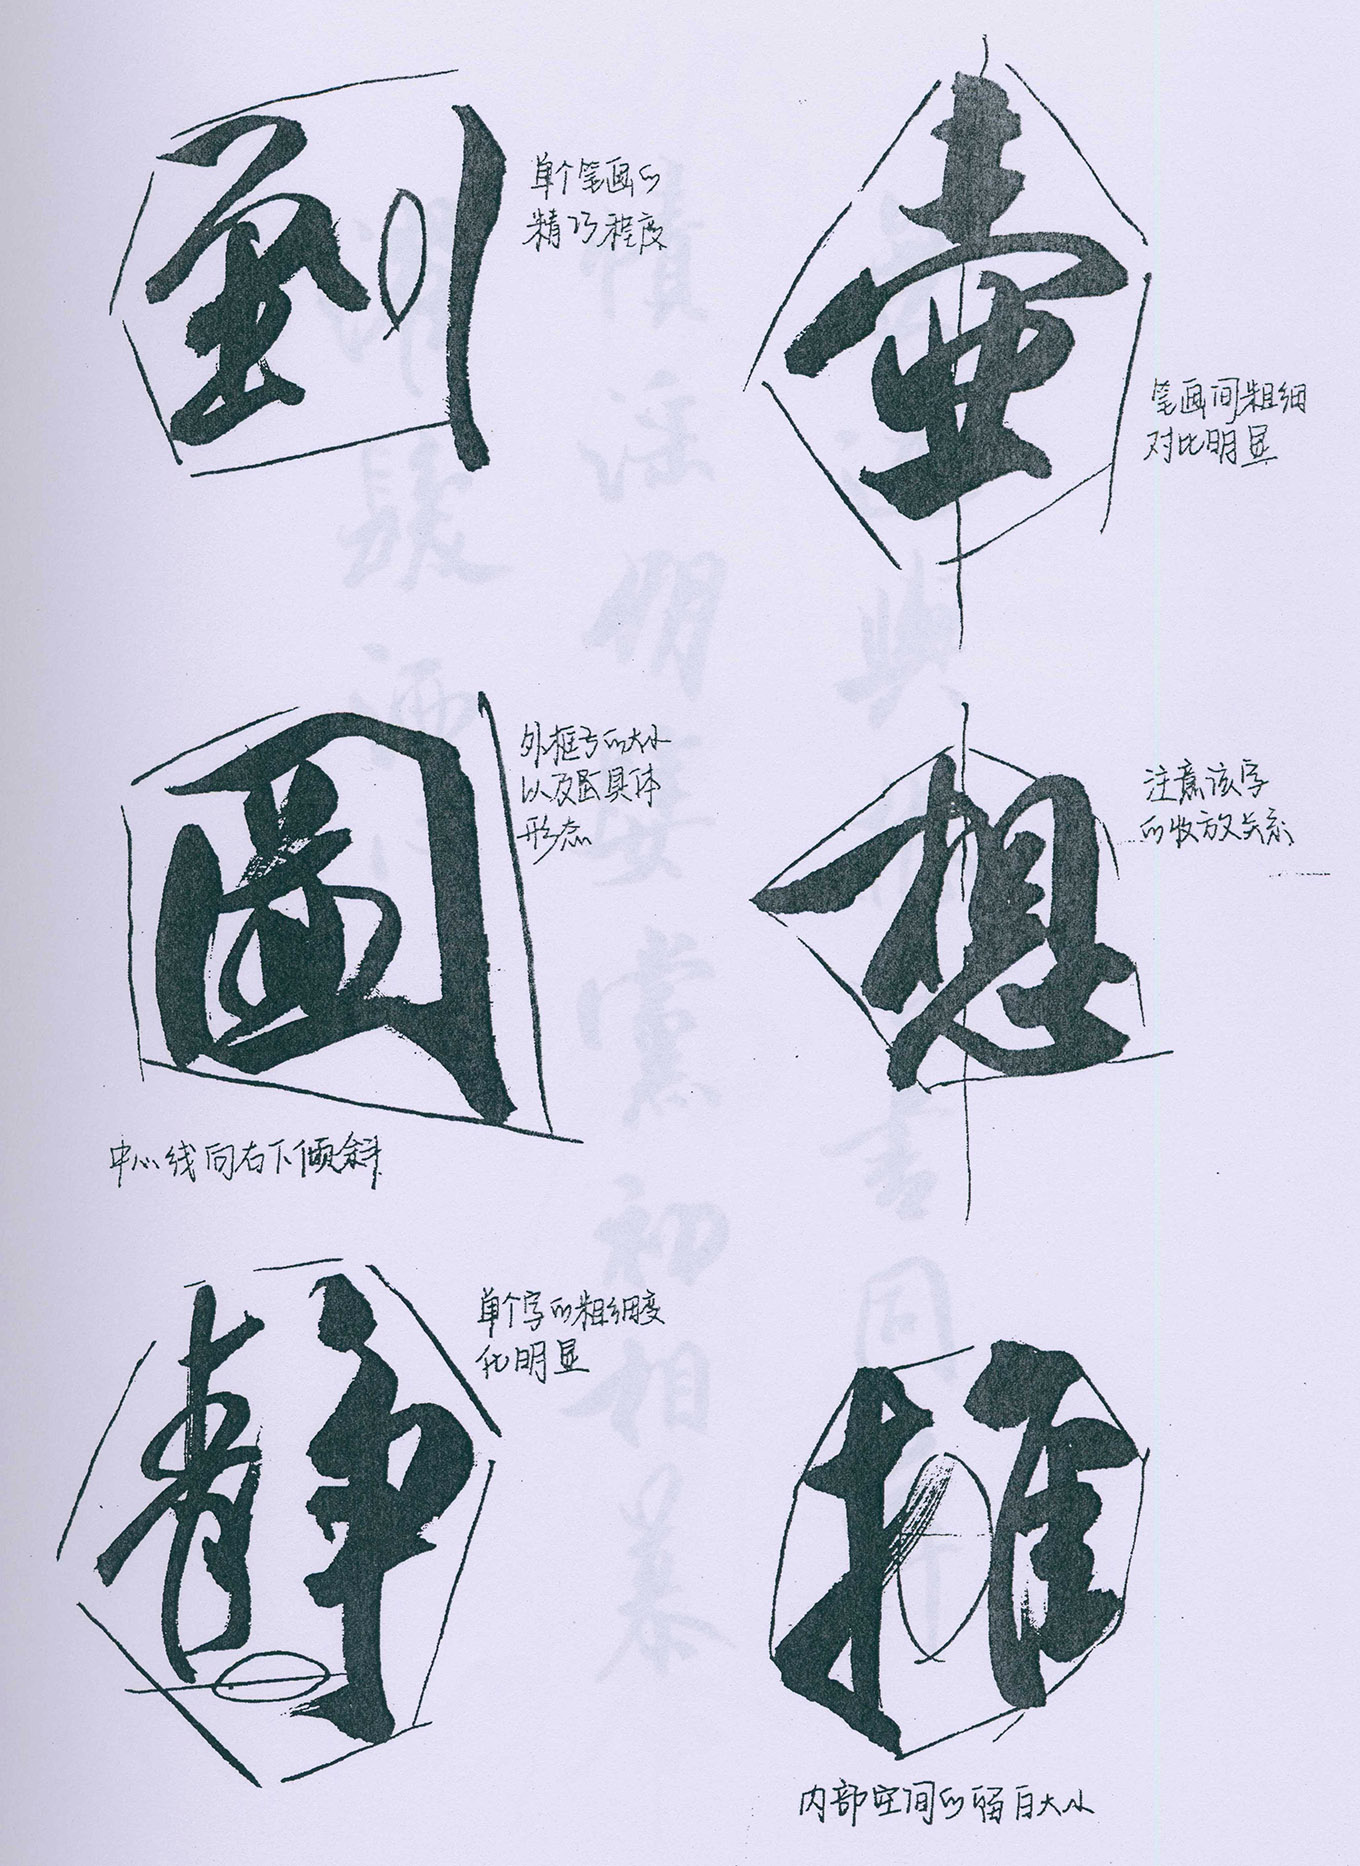 到
单个笔画的
精巧程度
壶
笔画间粗细
对比明显
圖
外框与的大小
以及具体
形态
中心线向右下倾斜
想
注意该字
的收放关系
静
单个字的粗细变
化明显
推
内部空间的留白大小